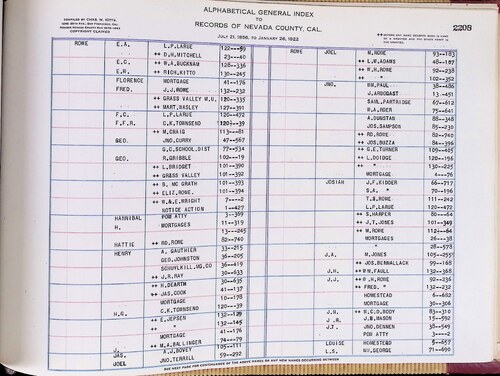 COMPILED BY CHAS. W. OTTS,
ALPHABETICAL GENERAL INDEX
TO
RECORDS OF NEVADA COUNTY, CAL.
JULY 21, 1856, TO JANUARY 28, 1922
COPYRIGHT CLAIMED
2209
ROWE E.A. L.P.LARUE 122--59
++ D.H.MITCHELL 23--40
E.C. ++ W.A.BUCKNAM 128--336
E.H. ++ RICH.KITTO 130--245
FLORENCE MORTGAGE 41--176
FRED. J.J.ROWE 132-232
++ GRASS VALLEY W.U. 120--335
++ MART.HASLEY 127--391
F.G. L.P.LARUE 120--472
F.F.R. C.K.TOWNSEND 120--39
++ M.CRAIG 113--81
GEO. JNO.CURRY 47--567
G.C.SCHOOL.DIST 77--534
GEO. R.GRIBBLE 102--19
++ L.BRIDGET 101--390
++ GRASS VALLEY 101--392
++ B. MC GRATH 101--393
++ ELIZ.ROWE. 101--394
++ W.&E.WRIGHT 7---2
NOTICE ACTION 1--427
HANNIBAL POW ATTY 3--369
H. MORTGAGES 11--319
" 13--245
HATTIE ++ RD.ROWE 82--740
HENRY A. GAUTHIER 33--215
GEO.JOHNSTON 36--205
SCHUYLKILL.MG.CO 36--419
++ J.R.RAY 30--633
++ H.DEARTH 30--635
++ JAS.COOK 41--137
MORTGAGE 10--178
C.K.TOWNSEND 120--39
H.G. ++ E.JEPSEN 132--129
++ " 132--145
MORTGAGE 41--176
++ M.A.BALLINGER 74--79
J. A.J.BOVEY 105--111
JAS. JNO.TERRILL 59--292
JOEL
ROWE JOEL M.ROWE 93--183
++ L.W.ADAMS 48--187
++ W.H.ROWE 92--238
++ " 102--352
JNO. WM.PAUL 38--486
J.ARBOGAST 13--451
SAML.PARTRIDGE 67--612
R.A.RDER 75--641
A.DUNSTAN 88--348
JOS.SAMPSON 85--230
++ RD.ROWE 82--740
++ JOS.BUZZA 84--396
++ G.E.TURNER 109--485
++ L.DOIDGE 120--196
++ " 130--235
MORTGAGE 4--76
JOSIAH J.F.KIDDER 66--717
S.A. " 70--196
T.B.ROWE 111--242
L.P.LARUE 120--472
++ S.HARPER 80--64
++ J.T.JONES 101--349
++ M.ROWE 112--64
MORTGAGES 26--38
" 28--578
J.A. M.JONES 105--255
++ JOS.BENNALLACK 99--168
J.H. ++ WM.FAULL 132--368
J.J. ++ E.H.ROWE 92--236
++ FRED. " 132--232
HOMESTEAD 6--682
MORTGAGE 30--306
J.N. ++ M.C.D.BODY 83--310
J.R. J.B.MASON 15--592
J.T. JNO.DENNEN 38--549
POW ATTY 3---2
LOUISE HOMESTEAD 5--657
L.S. WM.GEORGE 71--690
SEE NEXT PAGE FOR CONTINUANCE OF THE ABOVE NAMES OR ANY NEW NAMES OCCURRING BETWEEN